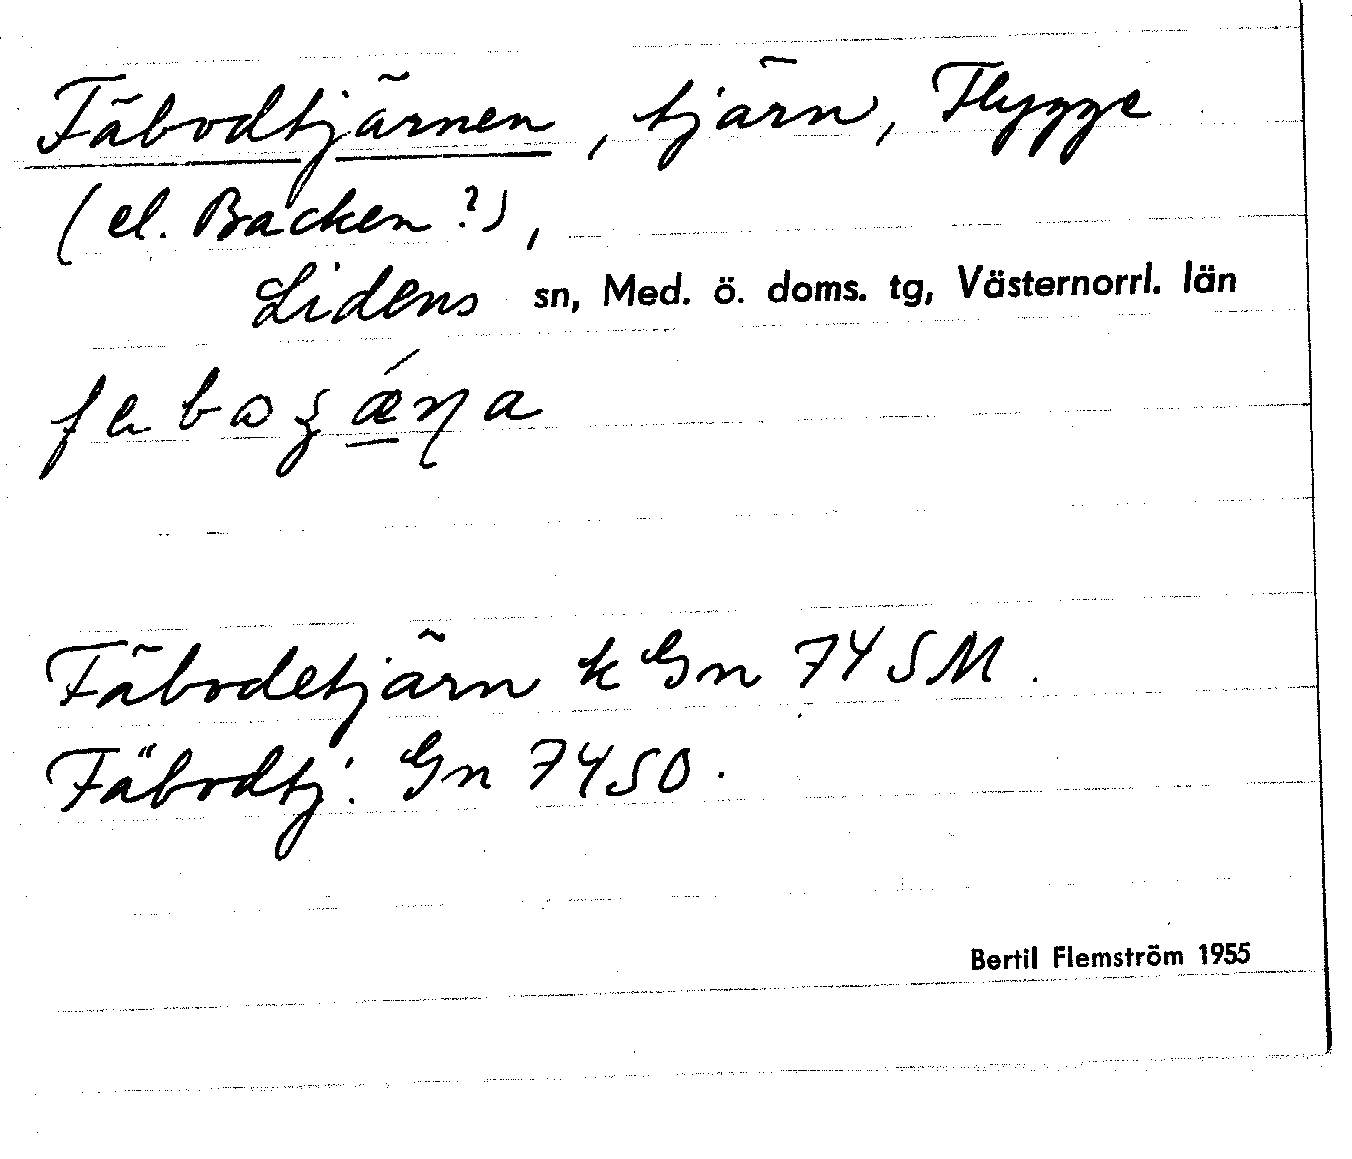 Fäbodtjärnen, tjärn, Flygge
(el. Backen?),
Lidens sn, Med. ö. doms. tg, Västernorrl. län
Fäbodetjärn k Gn 74 SM.
Fäbodtj: Gn 74 SO.
Bertil Flemström 1955